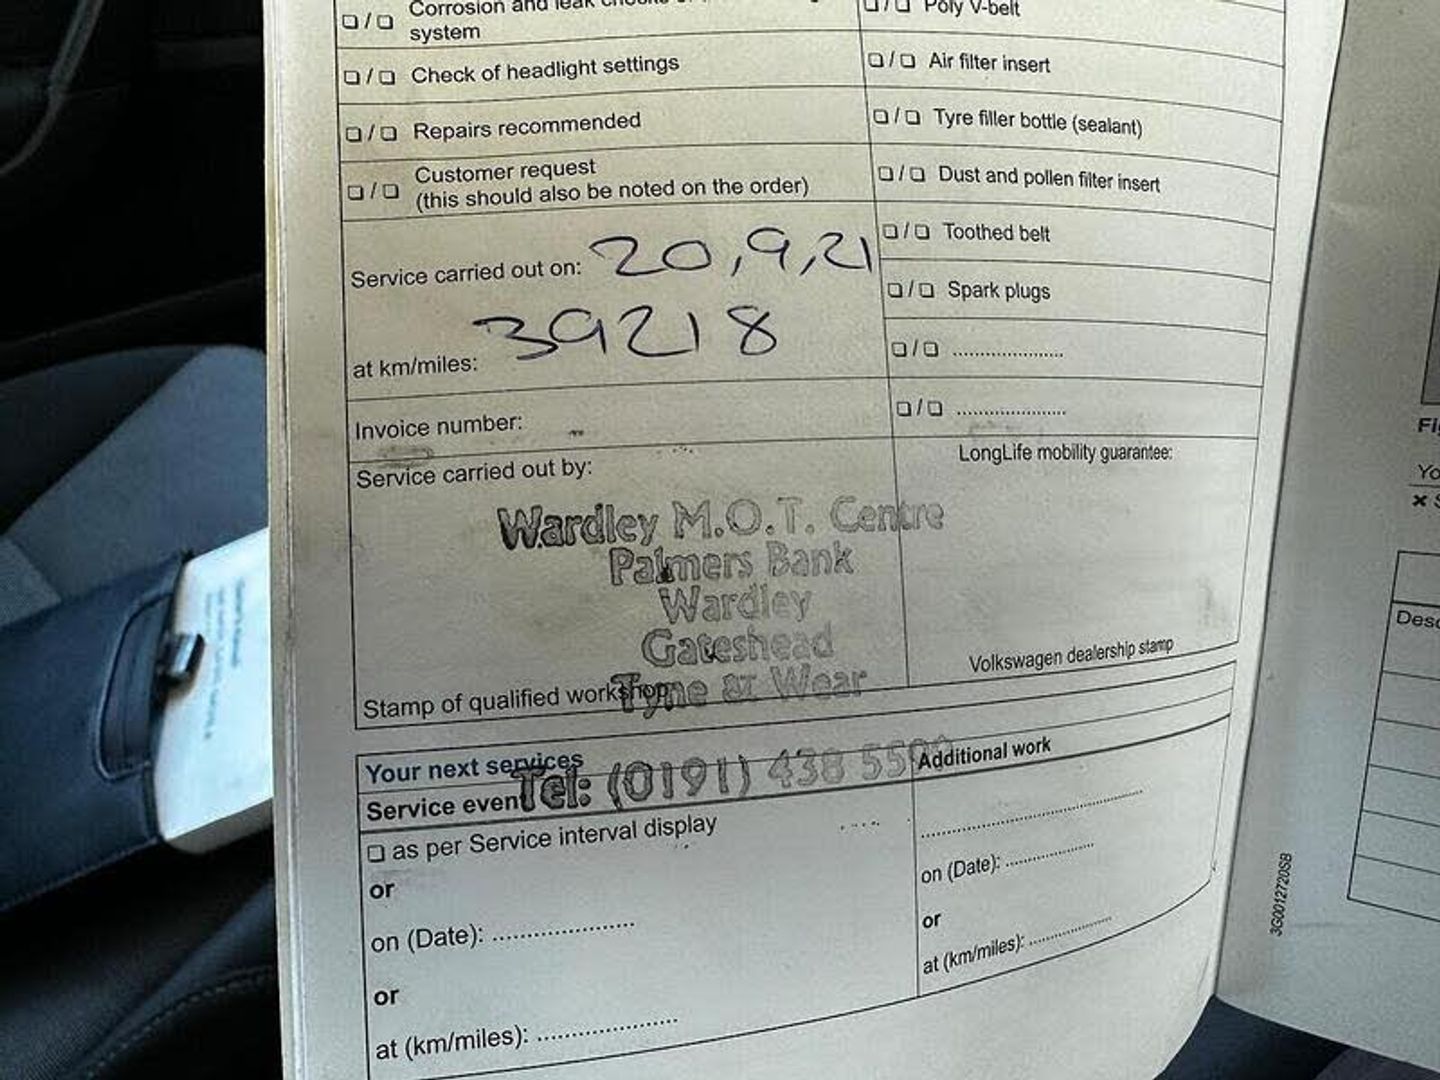 Corrosion and leak
system
❏ / ❏ Check of headlight settings
❏ / ❏ Repairs recommended
❏ / ❏ Customer request
(this should also be noted on the order)
Service carried out on: 20,9,21
at km/miles: 39218
Invoice number:
Service carried out by:
Wardley M.O.T. Centre
Palmers Bank
Wardley
Gateshead
Tyne & Wear
Stamp of qualified workshop
Tel: (0191) 438
❏ / ❏ Poly V-belt
❏ / ❏ Air filter insert
❏ / ❏ Tyre filler bottle (sealant)
❏ / ❏ Dust and pollen filter insert
❏ / ❏ Toothed belt
❏ / ❏ Spark plugs
❏ / ❏ ......................
❏ / ❏ ......................
LongLife mobility guarantee:
Volkswagen dealership stamp
Your next services
Service event
❏ as per Service interval display
or
on (Date): ......................
or
at (km/miles): ......................
Additional work
....................................
on (Date): ..................
or
at (km/miles): ................
3G0012720SB
Fi
Yo
× S
Desc